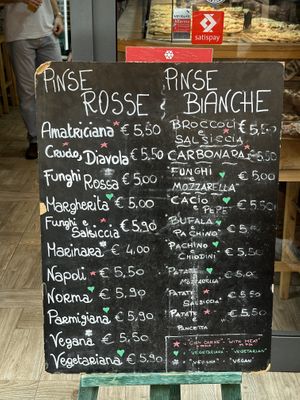 satispay
PINSE ROSSE
Amatriciana * € 5,50
Crudo, Diavola * € 5,50
Funghi Rossa ♥ € 5,00
Margherita ♥ € 5,00
Funghi e Salsiccia * € 5,90
Marinara * € 4,00
Napoli * € 5,50
Norma ♥ € 5,90
Parmigiana ♥ € 5,90
Vegana * € 5,50
Vegetariana ♥ € 5,90
PINSE BIANCHE
BROCCOLI e SALSICCIA * € 5,50
CARBONARA * € 5,50
FUNGHI e MOZZARELLA ♥ € 5,00
CACIO e PEPE ♥ € 5,50
BUFALA e PACHINO ♥ € 5,50
PACHINO e CHIODINI € 5,50
PATATE e MOZZARELLA ♥ € 5,50
PATATE e SALSICCIA * € 5,50
PATATE e PANCETTA * € 5,50
* = "CON CARNE" "WITH MEAT"
♥ = "VEGETARIANA" "VEGETARIAN"
* = "VEGANA" "VEGAN"